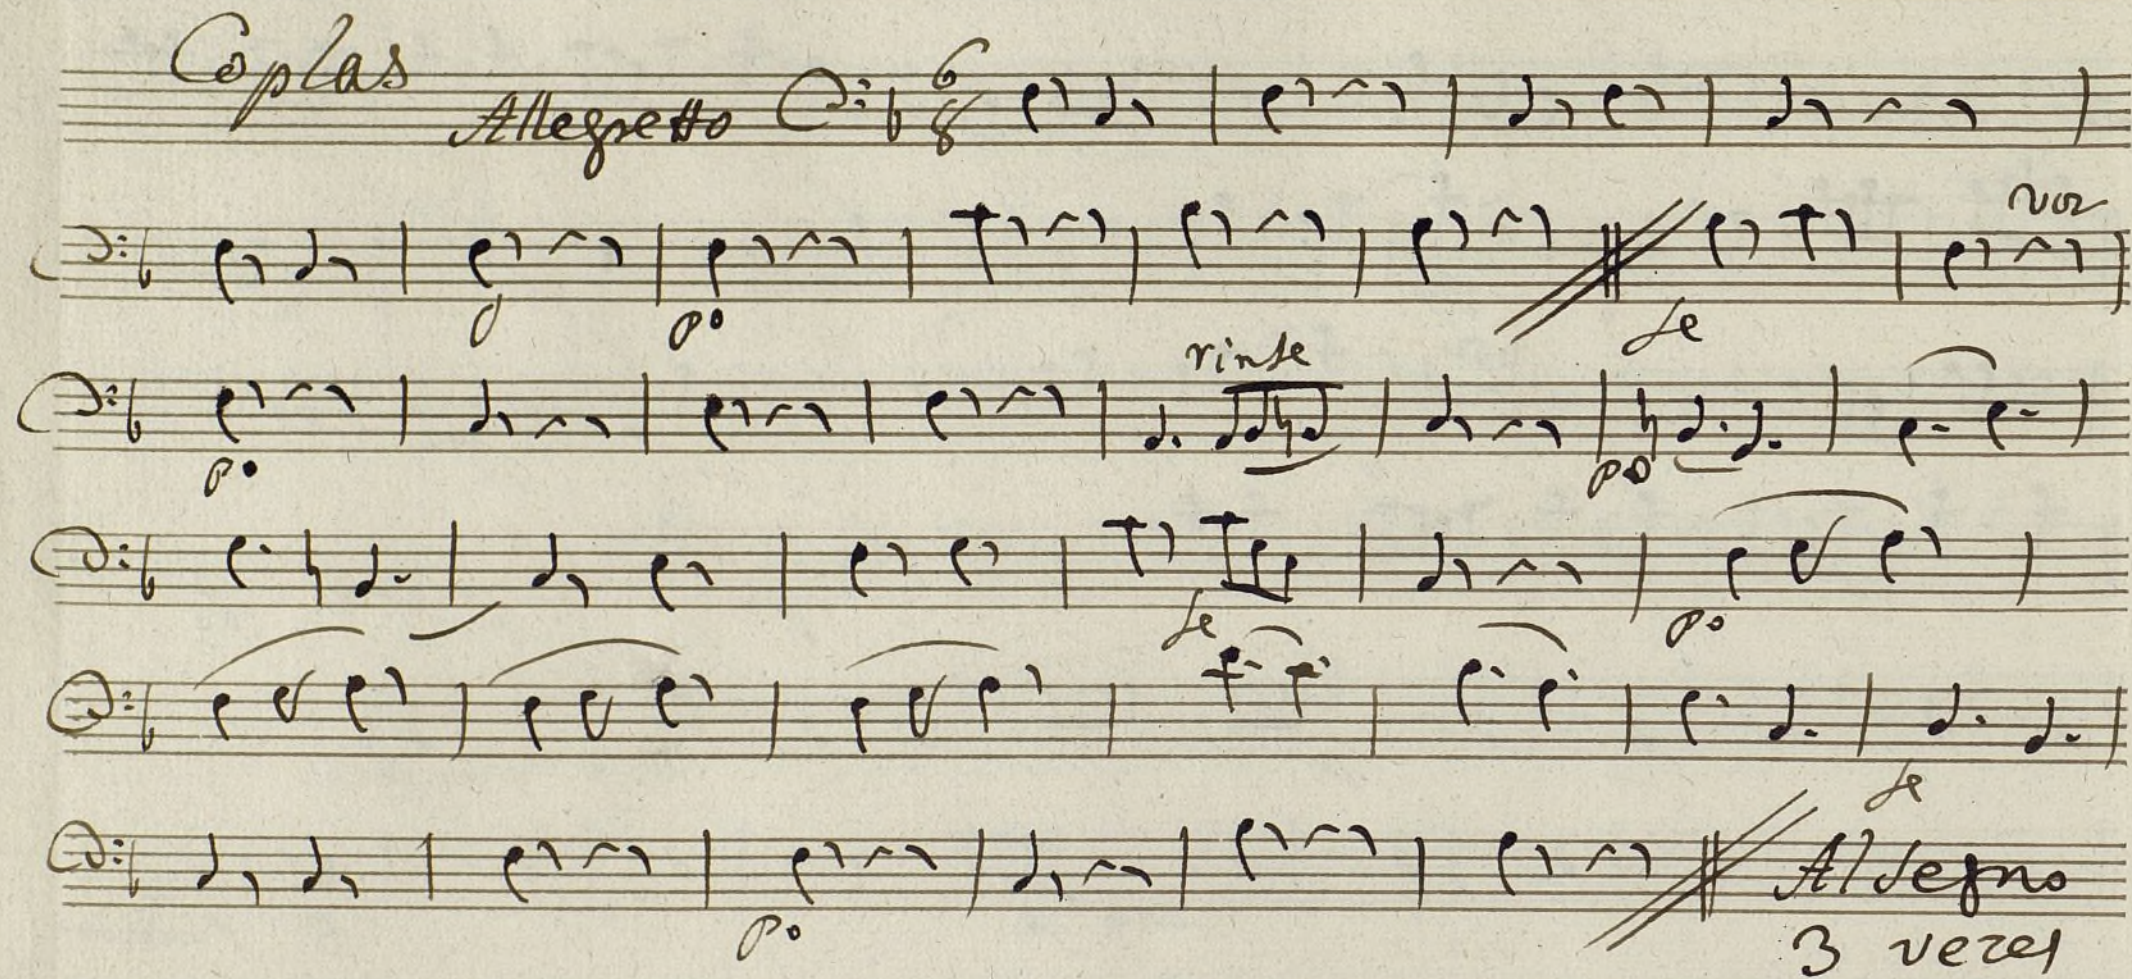 Coplas
Allegretto 6/8
voz
po fe
rinfe
po po
fe po
fe
po
Al Segno
3 vezes